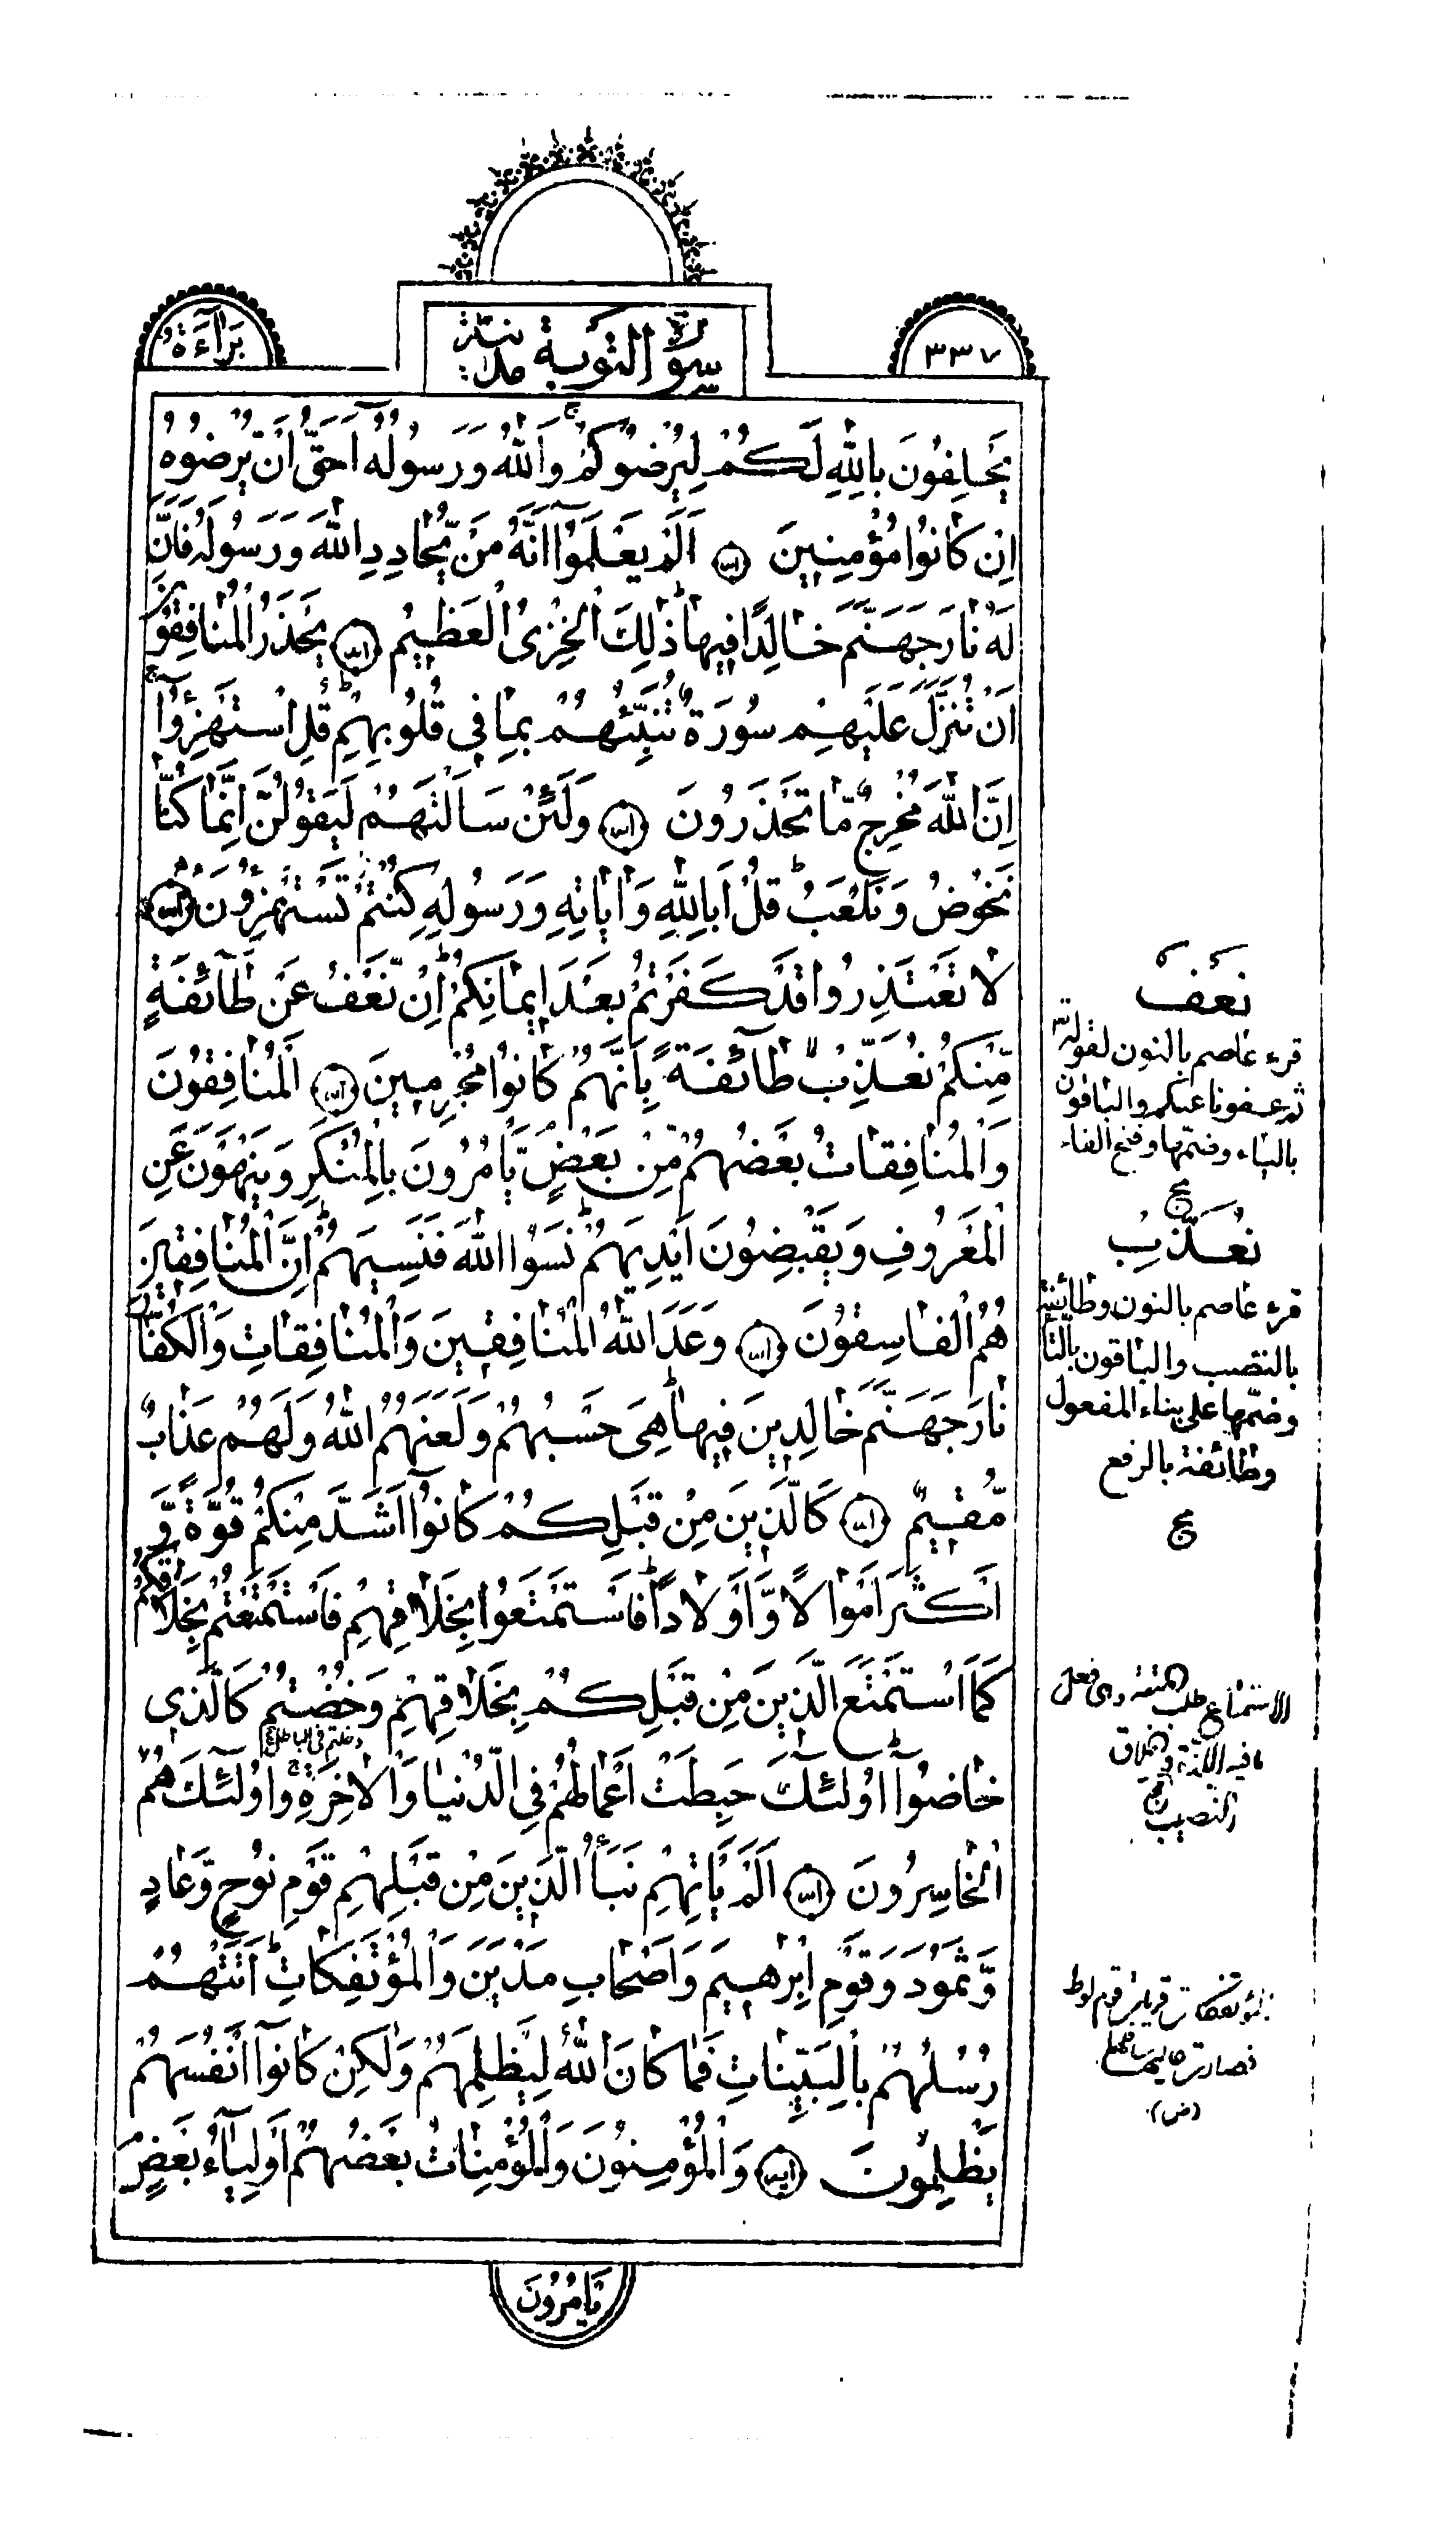 بَرَآءَةٌ
سورة التوبة مدنية
٣٣٧
يَحْلِفُونَ بِاللّٰهِ لَكُمْ لِيُرْضُوكُمْ وَاللّٰهُ وَرَسُولُهُ اَحَقُّ اَنْ يُرْضُوهُ
اِنْ كَانُوا مُؤْمِنِينَ اَلَمْ يَعْلَمُوٓا اَنَّهُ مَنْ يُحَادِدِ اللّٰهَ وَرَسُولَهُ فَاَنَّ
لَهُ نَارَ جَهَنَّمَ خَالِدًا فِيهَا ذٰلِكَ الْخِزْىُ الْعَظِيمُ يَحْذَرُ الْمُنَافِقُونَ
اَنْ تُنَزَّلَ عَلَيْهِمْ سُورَةٌ تُنَبِّئُهُمْ بِمَا فِي قُلُوبِهِمْ قُلِ اسْتَهْزِءُوٓا
اِنَّ اللّٰهَ مُخْرِجٌ مَّا تَحْذَرُونَ وَلَئِنْ سَاَلْتَهُمْ لَيَقُولُنَّ اِنَّمَا كُنَّا
نَخُوضُ وَنَلْعَبُ قُلْ اَبِاللّٰهِ وَاٰيَاتِهِ وَرَسُولِهِ كُنْتُمْ تَسْتَهْزِءُونَ
لَا تَعْتَذِرُوا قَدْ كَفَرْتُمْ بَعْدَ اِيمَانِكُمْ اِنْ نَّعْفُ عَنْ طَآئِفَةٍ
مِّنْكُمْ نُعَذِّبْ طَآئِفَةً بِاَنَّهُمْ كَانُوا مُجْرِمِينَ اَلْمُنَافِقُونَ
وَالْمُنَافِقَاتُ بَعْضُهُمْ مِّنْ بَعْضٍ يَّاْمُرُونَ بِالْمُنْكَرِ وَيَنْهَوْنَ عَنِ
الْمَعْرُوفِ وَيَقْبِضُونَ اَيْدِيَهُمْ نَسُوا اللّٰهَ فَنَسِيَهُمْ اِنَّ الْمُنَافِقِينَ
هُمُ الْفَاسِقُونَ وَعَدَ اللّٰهُ الْمُنَافِقِينَ وَالْمُنَافِقَاتِ وَالْكُفَّارَ
نَارَ جَهَنَّمَ خَالِدِينَ فِيهَا هِىَ حَسْبُهُمْ وَلَعَنَهُمُ اللّٰهُ وَلَهُمْ عَذَابٌ
مُّقِيمٌ كَالَّذِينَ مِنْ قَبْلِكُمْ كَانُوٓا اَشَدَّ مِنْكُمْ قُوَّةً وَّ
اَكْثَرَ اَمْوَالًا وَّاَوْلَادًا فَاسْتَمْتَعُوا بِخَلَاقِهِمْ فَاسْتَمْتَعْتُمْ بِخَلَاقِكُمْ
كَمَا اسْتَمْتَعَ الَّذِينَ مِنْ قَبْلِكُمْ بِخَلَاقِهِمْ وَخُضْتُمْ كَالَّذِى
دخلتم في الباطل
خَاضُوٓا اُولٰٓئِكَ حَبِطَتْ اَعْمَالُهُمْ فِي الدُّنْيَا وَالْاٰخِرَةِ وَاُولٰٓئِكَ هُمُ
الْخَاسِرُونَ اَلَمْ يَاْتِهِمْ نَبَاُ الَّذِينَ مِنْ قَبْلِهِمْ قَوْمِ نُوحٍ وَّعَادٍ
وَّثَمُودَ وَقَوْمِ اِبْرٰهِيمَ وَاَصْحَابِ مَدْيَنَ وَالْمُؤْتَفِكَاتِ اَتَتْهُمْ
رُسُلُهُمْ بِالْبَيِّنَاتِ فَمَا كَانَ اللّٰهُ لِيَظْلِمَهُمْ وَلٰكِنْ كَانُوٓا اَنْفُسَهُمْ
يَظْلِمُونَ وَالْمُؤْمِنُونَ وَالْمُؤْمِنَاتُ بَعْضُهُمْ اَوْلِيَآءُ بَعْضٍ
يَاْمُرُونَ
نَعْفُ
قرء عاصم بالنون لقوله
ثم عفونا عنكم والباقون
بالياء وضمّها وفتح الفاء
نُعَذِّبْ
قرء عاصم بالنون وطائفة
بالنصب والباقون بالتاء
وضمّها على بناء المفعول
وطائفة بالرفع
الاستمتاع طلب المتعة وهى فعل
ما فيه اللذة والخلاق
النصيب
المؤتفكات قريات قوم لوط
فصارت عاليها سافلها
(ض)